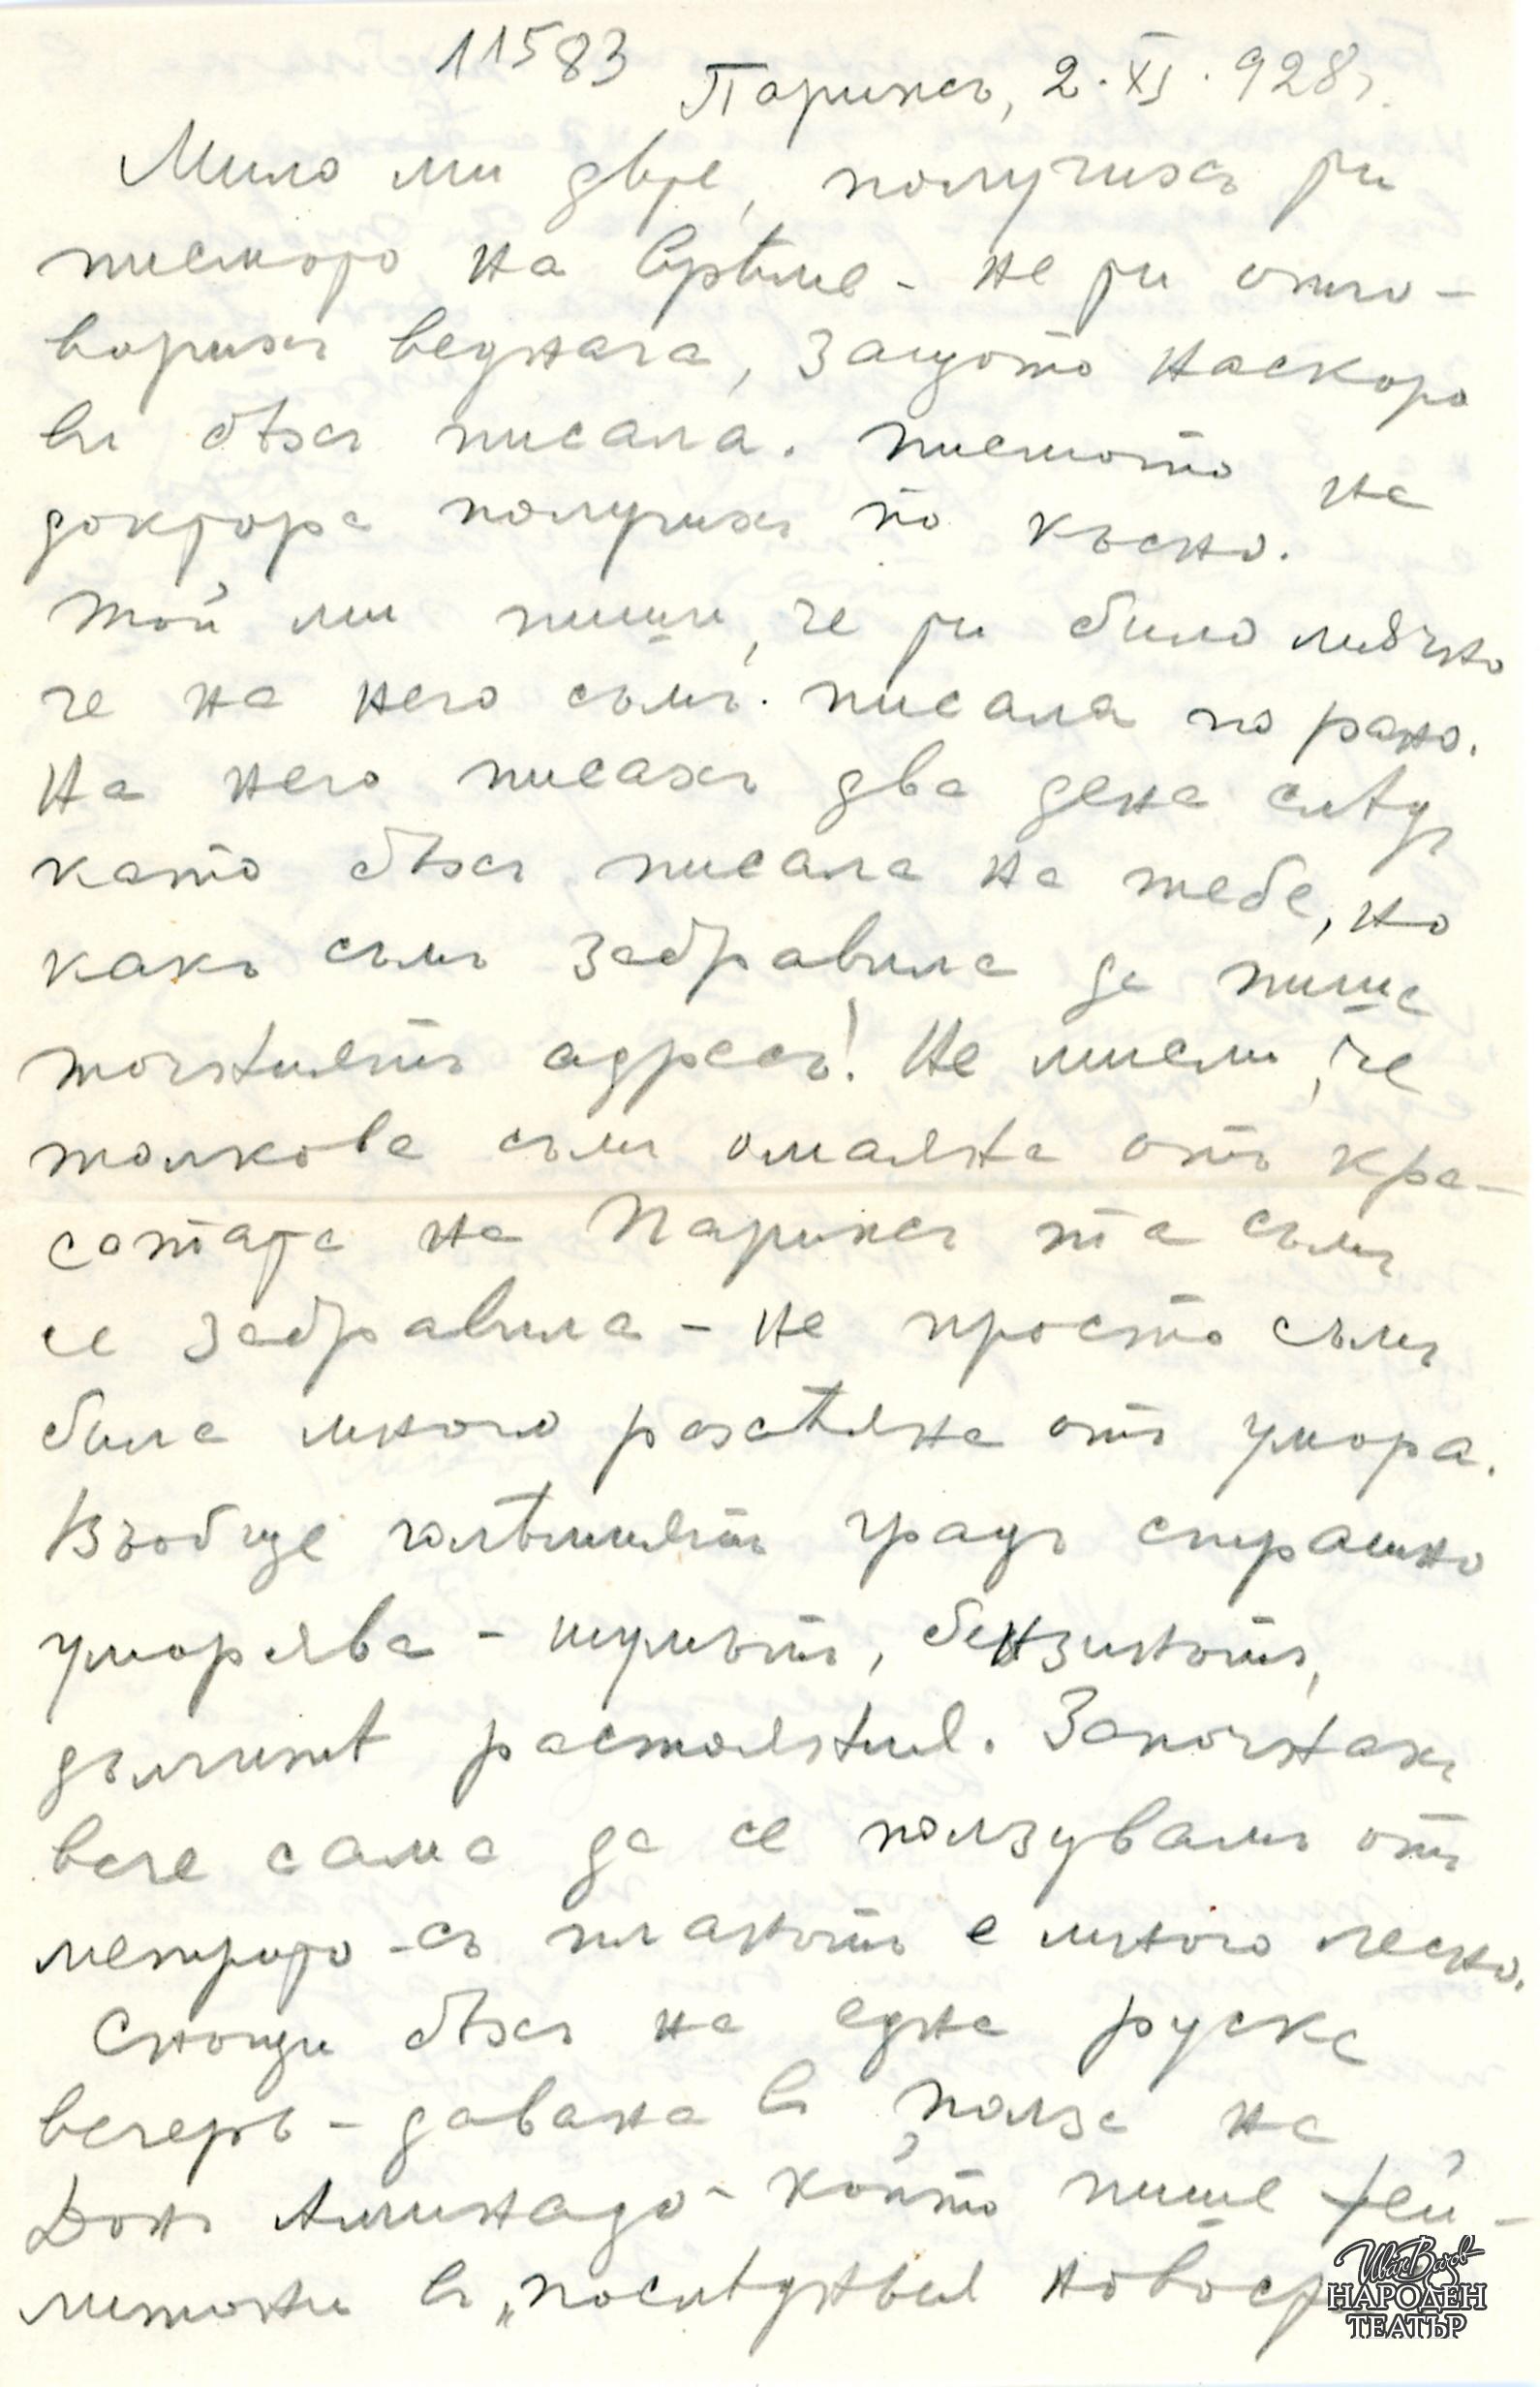 11583
Парижъ, 2. XI. 928 г.
Мило ми дѣте, получихъ ти
писмото на врѣме - не ти отго-
ворихъ веднага, защото наскоро
ви бѣхъ писала. Писмото на
доктора получихъ по късно.
Той ми пише, че ти било мѫчно
че на него съмъ писала по рано.
На него писахъ два дена слѣдъ
като бѣхъ писала на тебе, но
какъ съмъ забравила да пиша
точниятъ адресъ! Не мисли, че
толкова съмъ омаяна отъ кра-
сотата на Парижъ та съмъ
се забравила - не просто съмъ
била много разсѣяна отъ умора.
Въобще голѣмиятъ градъ страшно
уморява - шумътъ, бензинътъ,
дългитѣ растояния. Започнахъ
вече сама да се ползувамъ отъ
метрото - съ планътъ е много лесно.
Снощи бѣхъ на една руска
вечерь - давана въ полза на
Донъ Аминадо - който пише фей-
летони въ „Послѣдныя
Иван Вазов
НАРОДЕН
ТЕАТЪР